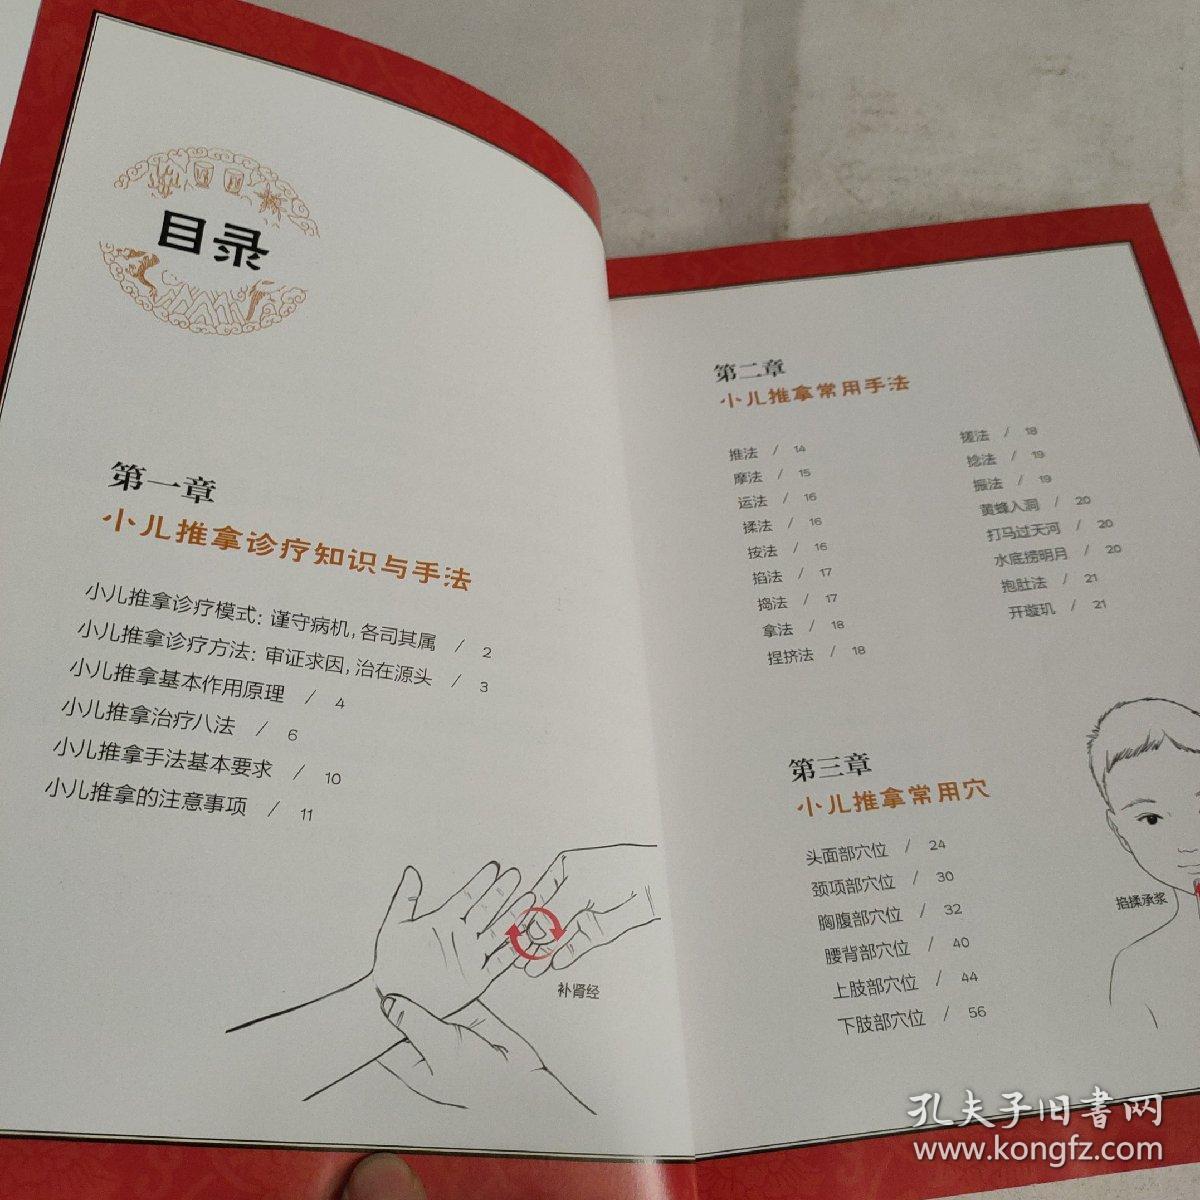 目录
第一章
小儿推拿诊疗知识与手法
小儿推拿诊疗模式：谨守病机，各司其属 / 2
小儿推拿诊疗方法：审证求因，治在源头 / 3
小儿推拿基本作用原理 / 4
小儿推拿治疗八法 / 6
小儿推拿手法基本要求 / 10
小儿推拿的注意事项 / 11
补肾经
第二章
小儿推拿常用手法
推法 / 14
摩法 / 15
运法 / 16
揉法 / 16
按法 / 16
掐法 / 17
捣法 / 17
拿法 / 18
捏挤法 / 18
搓法 / 18
捻法 / 19
振法 / 19
黄蜂入洞 / 20
打马过天河 / 20
水底捞明月 / 20
抱肚法 / 21
开璇玑 / 21
第三章
小儿推拿常用穴
头面部穴位 / 24
颈项部穴位 / 30
胸腹部穴位 / 32
腰背部穴位 / 40
上肢部穴位 / 44
下肢部穴位 / 56
掐揉承浆
孔夫子旧书网
www.kongfz.com